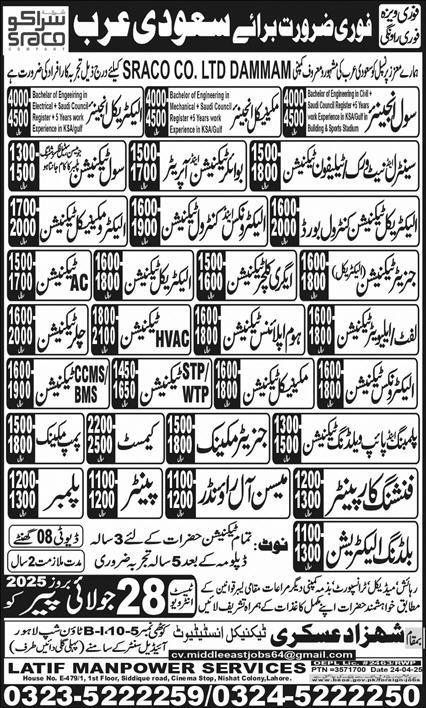 فوری ویزہ
فوری روانگی
فوری ضرورت برائے سعودی عرب
سراکو
SRACO
COMPANY
ہمارے معزز پرنسپل کو سعودی عرب کی مشہور و معروف کمپنی SRACO CO. LTD DAMMAM کیلئے درج ذیل تجربہ کار افراد کی ضرورت ہے
سول انجینئر
Bachelor of Engineering in Civil + Saudi Council Register +5 Years work Experience in KSA/Gulf in Building & Sports Stadium
4000
4500
مکینیکل انجینئر
Bachelor of Engineering in Mechanical + Saudi Council Register + 5 Years work Experience in KSA/gulf
4000
4500
الیکٹریکل انجینئر
Bachelor of Engineering in Electrical + Saudi Council Register +5 Years work Experience in KSA/Gulf
4000
4500
سینٹرل نیٹ ورک/ٹیلیفون ٹیکنیشن 1500 1800
بوائلر ٹیکنیشن اینڈ آپریٹر 1500 1700
سول ٹیکنیشن 1300 1500
الیکٹریکل ٹیکنیشن کنٹرول بورڈ 1600 2000
الیکٹرونکس اینڈ کنٹرول ٹیکنیشن 1600 1900
الیکٹرو مکینیکل ٹیکنیشن 1700 2000
جنریٹر ٹیکنیشن (الیکٹریکل) 1600 1800
ایگری کلچر ٹیکنیشن 1500 1600
الیکٹریکل ٹیکنیشن 1600 1800
AC ٹیکنیشن 1500 1700
لفٹ/ایلیویٹر ٹیکنیشن 1600 1800
ہوم اپلائنس ٹیکنیشن 1600 1800
HVAC ٹیکنیشن 1800 2100
چلر ٹیکنیشن 1600 2000
الیکٹرونکس ٹیکنیشن 1600 1800
مکینیکل ٹیکنیشن 1600 1800
STP/WTP ٹیکنیشن 1450 1650
CCMS/BMS ٹیکنیشن 1600 1900
پلمبنگ اینڈ پائپ ویلڈنگ ٹیکنیشن 1300 1500
جنریٹر مکینک 1500 1800
کیمسٹ 2200 2500
پمپ مکینک 1500 1800
فنشنگ کارپینٹر 1200 1300
میسن آل راؤنڈر 1100 1200
پینٹر 1100 1200
پلمبر 1200 1300
بلڈنگ الیکٹریشن 1100 1300
نوٹ: تمام ٹیکنیشن حضرات کے لئے 3 سالہ ڈپلومہ کے بعد 5 سالہ تجربہ ضروری
ڈیوٹی 08 گھنٹے
مدت ملازمت 2 سال
رہائش/میڈیکل/ٹرانسپورٹ بذمہ کمپنی دیگر مراعات مقامی لیبر قوانین کے
مطابق خواہشمند حضرات اپنے مکمل کاغذات کے ہمراہ تشریف لائیں
ٹیسٹ انٹرویو 28 جولائی بروز پیر 2025 کو
بمقام شہزاد عسکری ٹیکنیکل انسٹیٹیوٹ کوٹھی نمبر B-I-10-5 ٹاؤن شپ لاہور
cv.middleeastjobs64@gmail.com
LATIF MANPOWER SERVICES
OEPL Lic. # 2463/RWP
PTN #3571700 Date 24-04-25
House No. E-479/1, 1st Floor, Siddique road, Cinema Stop, Nishat Colony, Lahore.
0323-5222259/0324-5222250